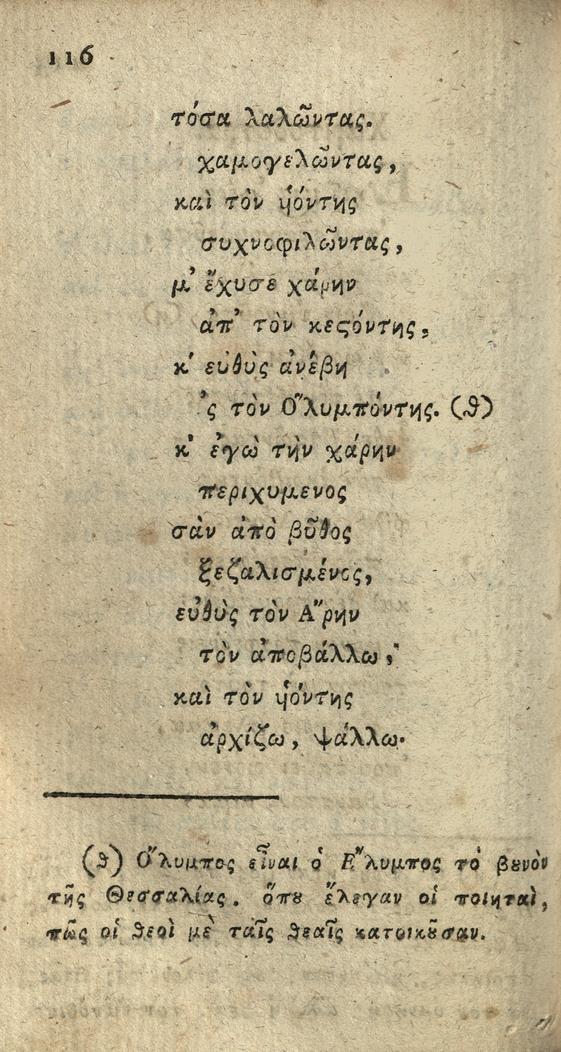 116
τόσα λαλῶντας.
χαμογελῶντας,
καὶ τὸν ὑόντης
συχνοφιλῶντας,
μ' ἔχυσε χάρην
ἀπ' τὸν κεϛόντης,
κ' εὐθὺς ἀνέβη
'ς τὸν Ὄλυμπόντης. (ϑ)
κ' ἐγὼ τὴν χάρην
περιχυμενος
σὰν ἀπὸ βῦθος
ξεζαλισμένος,
εὐθὺς τὸν Ἄρην
τὸν ἀποβάλλω,
καὶ τὸν ὑόντης
ἀρχίζω, ψάλλω.
(ϑ) Ὄλυμπος εἶναι ὁ Ἔλυμπος τὸ βȣνὸν
τῆς Θεσσαλίας. ὅπȣ ἔλεγαν οἱ ποιηταὶ,
πῶς οἱ ϑεοὶ μὲ ταῖς ϑεαῖς κατοικȣ͂σαν.